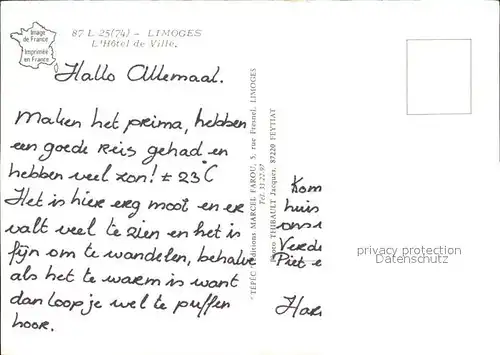 Image
de France
Imprimée
en France
87 L 25(74) - LIMOGES
L'Hôtel de Ville.
Hallo Allemaal.
Maken het prima, hebben
een goede reis gehad en
hebben veel zon! ± 23°C
Het is hier erg mooi en er
valt veel te zien en het is
fijn om te wandelen, behalve
als het te warm is want
dan loop je wel te puffen
hoor.
"TEPEC" Editions MARCEL FAROU, 5, rue Fresnel, LIMOGES
Tél. 33-22-97
Photo THIBAULT Jacques, 87220 FEYTIAT
Kom
huis
ons
Verde
Piet e
Har
privacy protection
Datenschutz